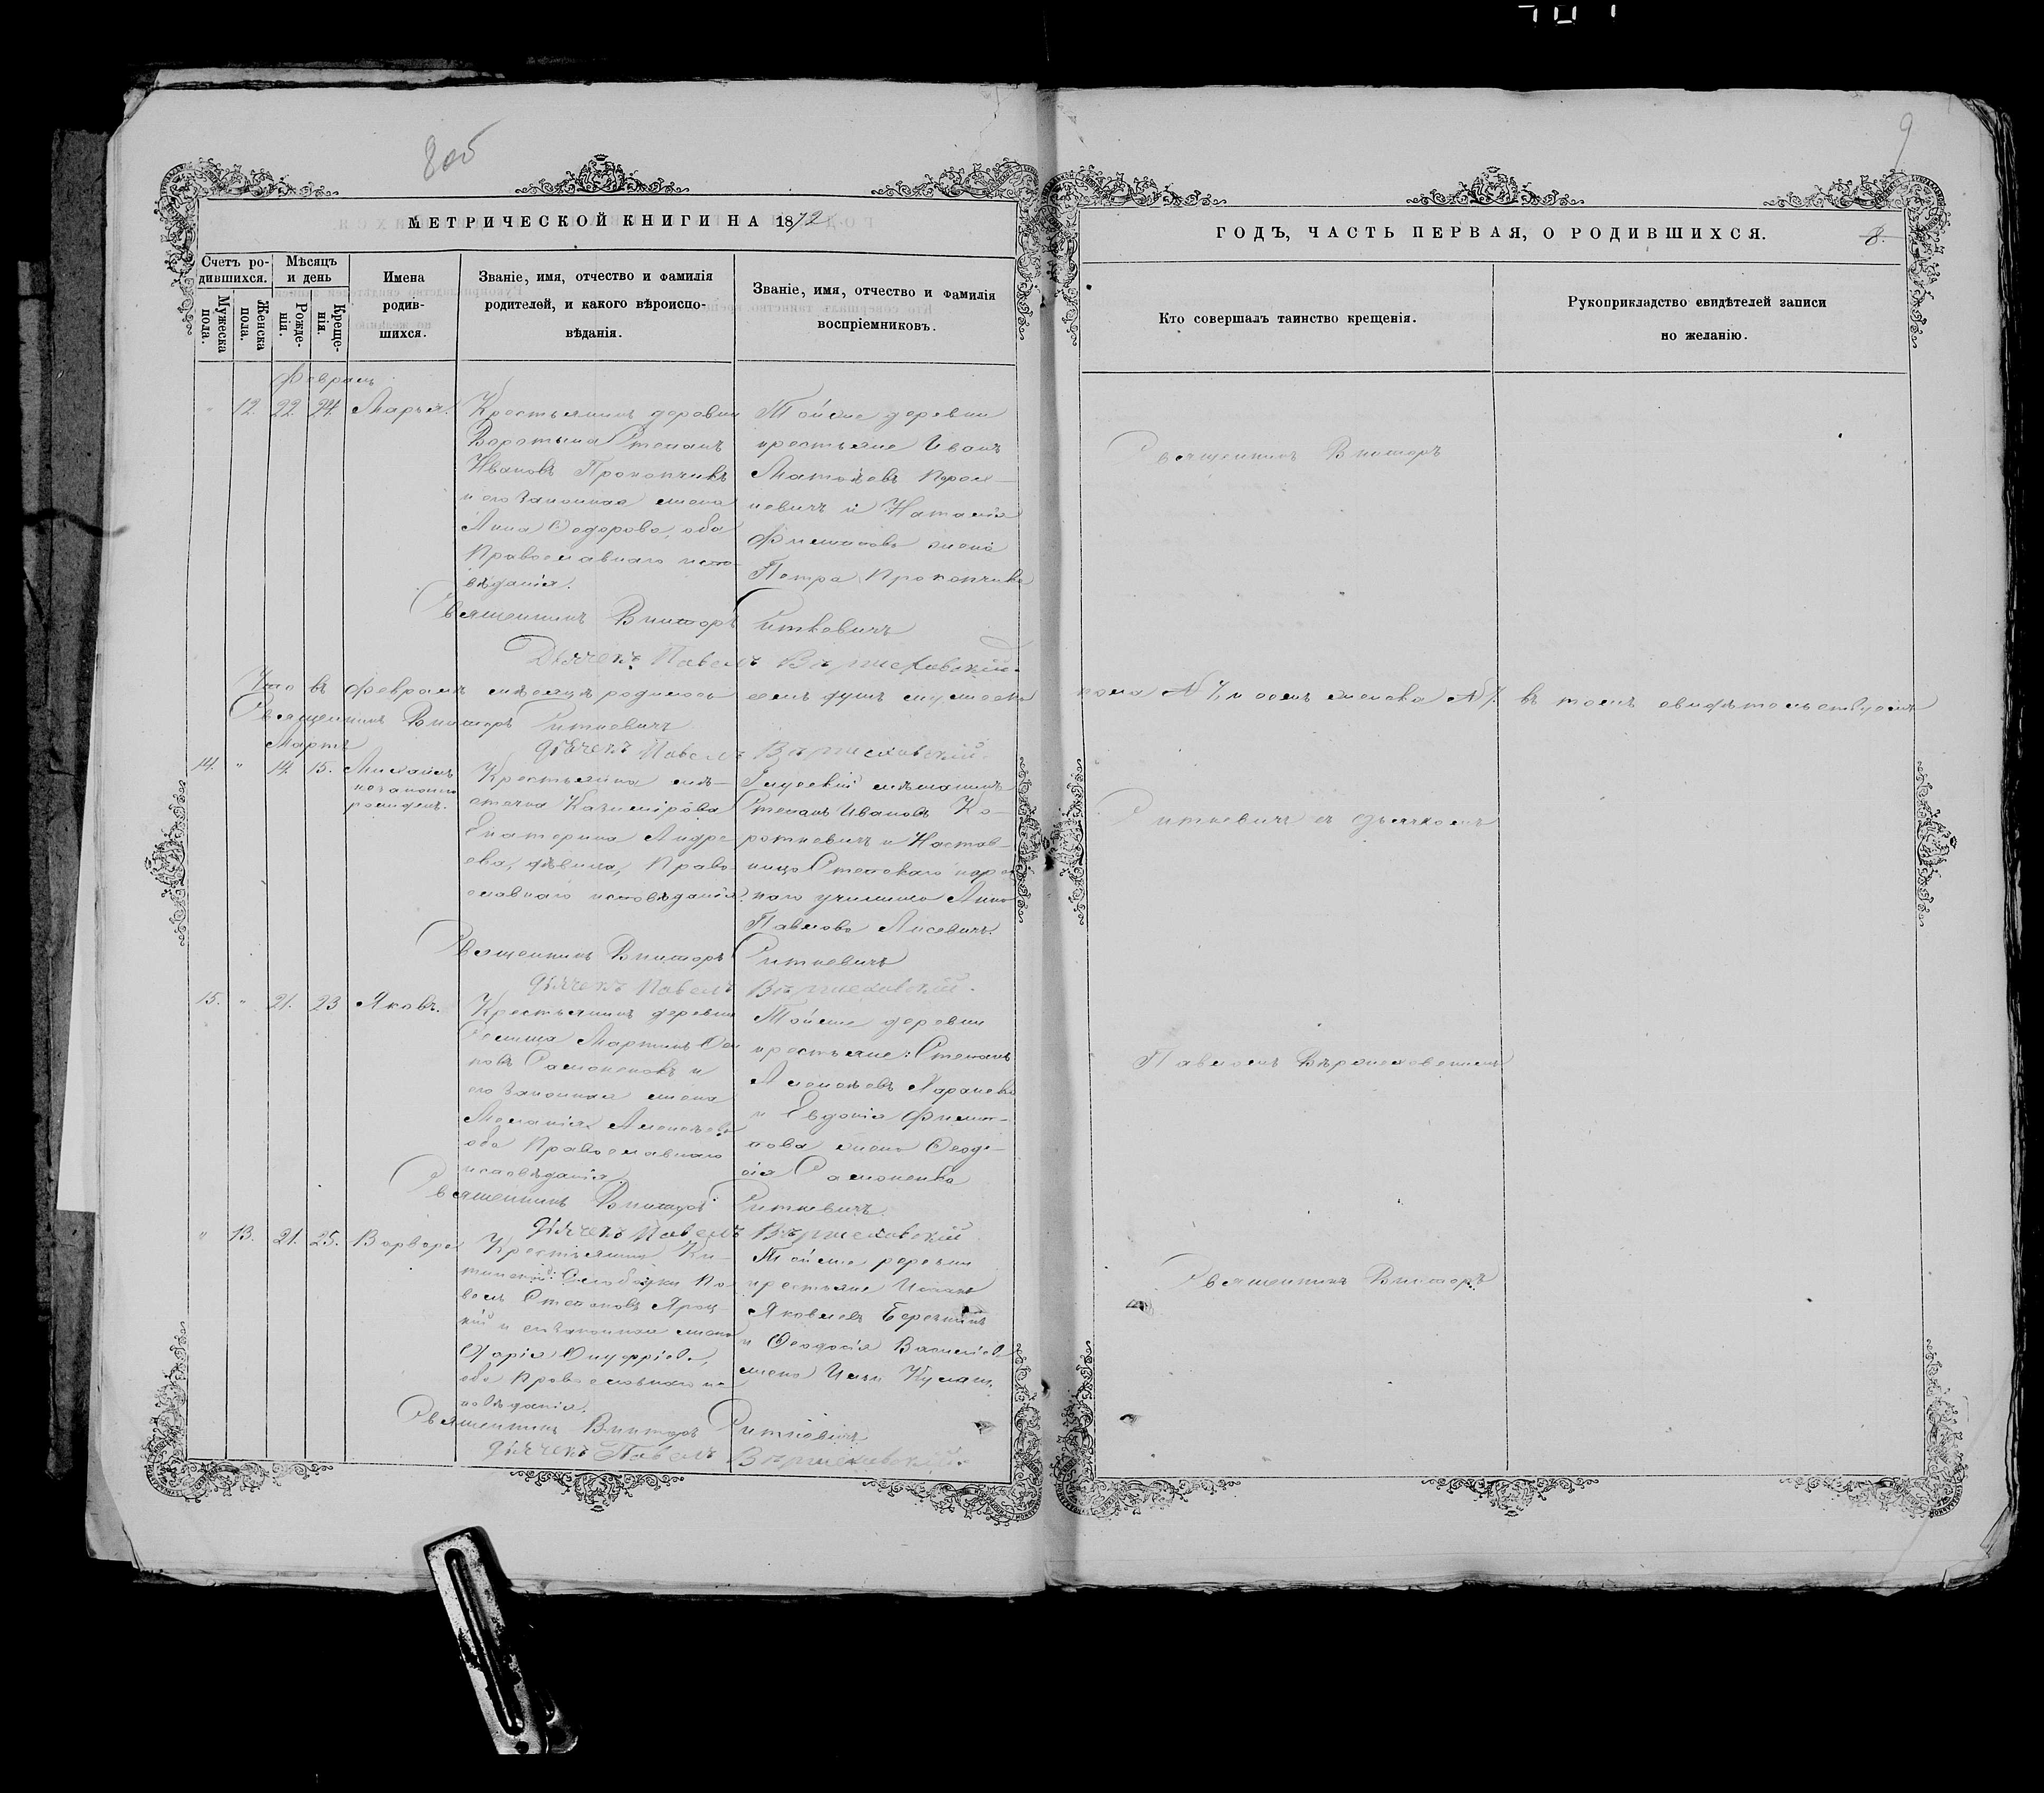 8об
9
МЕТРИЧЕСКОЙ КНИГИ НА 1872
ГОДЪ, ЧАСТЬ ПЕРВАЯ, О РОДИВШИХСЯ.
8.
Счетъ ро-
дившихся.
Мужеска
пола.
Женска
пола.
Мѣсяцъ
и день
Рожде-
нія.
Креще-
нія.
Имена
родив-
шихся.
Званіе, имя, отчество и фамилія
родителей, и какого вѣроиспо-
вѣданія.
Званіе, имя, отчество и фамилія
воспріемниковъ.
Кто совершалъ таинство крещенія.
Рукоприкладство свидѣтелей записи
по желанію.
Февраль
" 12. 22. 24. Марья.
Крестьянинъ деревни
Степанъ
Ивановъ Прокопчикъ
и его законная жена
Анна Федорова, оба
Православнаго испо-
вѣданія.
Тойже деревни
крестьяне Иванъ
и Наталія
жена
Петра Прокопчика
Священникъ Викторъ
Священникъ Викторъ Ситкевичъ
Дьячекъ Павелъ Вержеховскій.
Что въ февралѣ мѣсяцѣ родилось семь душъ мужеска
пола № 7 и семь женска № 7. въ томъ свидѣтельствуемъ
Священникъ Викторъ Ситкевичъ
дьячекъ Павелъ Вержеховскій.
Мартъ
14. " 14. 15. Михаилъ
незаконно
рожден.
Крестьянка мѣ-
стечка Казимірова
Екатерина Андре-
ева, дѣвица, Право-
славнаго исповѣданія.
мѣщанинъ
Степанъ Ивановъ Ко-
роткевичъ и Настав-
ница народ-
наго училища Анна
Павлова Лисевичъ.
Ситкевичъ съ дьячкомъ
Священникъ Викторъ Ситкевичъ
дьячекъ Павелъ Вержеховскій.
15. " 21. 23 Яковъ.
Крестьянинъ деревни
Мартинъ
Самонековъ и
его законная жена
Меланія Алексѣева
оба Православнаго
исповѣданія.
Тойже деревни
крестьяне: Степанъ
Алексѣевъ
и Евдокія Филип-
пова жена Феодо-
сія Самоненка
Павломъ Вержеховскимъ
Священникъ Викторъ Ситкевичъ
дьячекъ Павелъ Вержеховскій
" 13. 21. 25. Варвара
Крестьянинъ
Слободки Па-
велъ Степановъ Яроц-
кій и его законная жена
Марія Онуфріева,
оба Православнаго ис-
повѣданія.
Тойже деревни
крестьяне
Яковлевъ
и Феодосія Васильева
жена
Священникъ Викторъ
Священникъ Викторъ Ситкевичъ
дьячекъ Павелъ Вержеховскій.